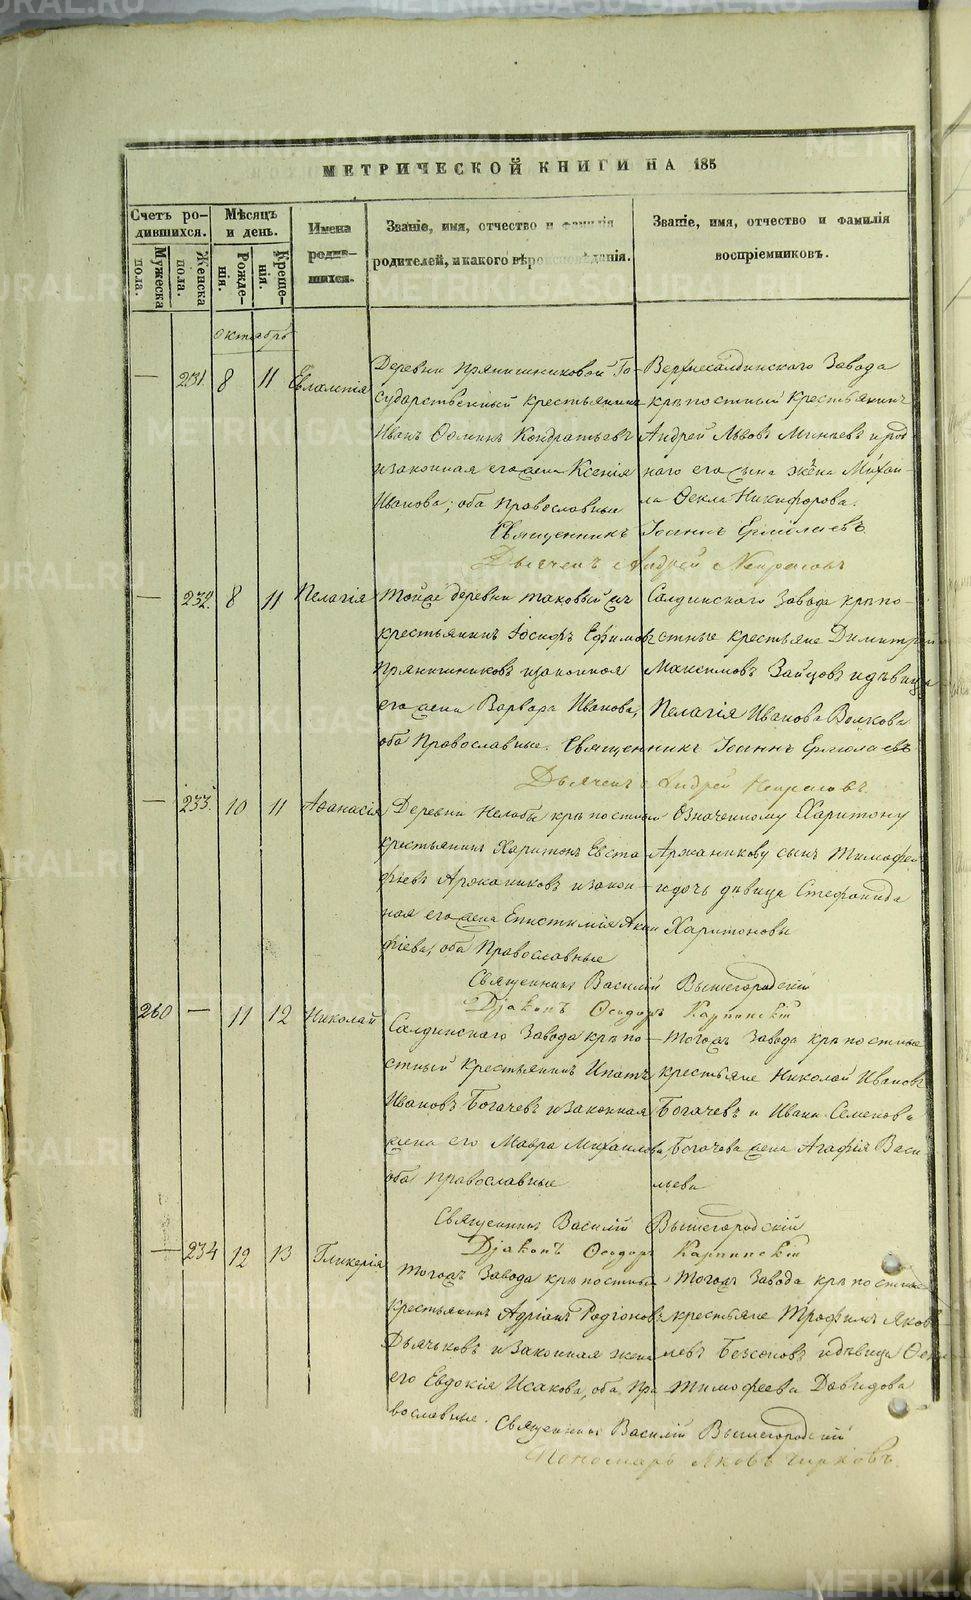 МЕТРИЧЕСКОЙ КНИГИ НА 185
Счетъ ро-
дившихся.
Мужеска
пола.
Женска
пола.
Мѣсяцъ
и день.
Рожде-
нія.
Креще-
нія.
Имена
родив-
шихся.
Званіе, имя, отчество и фамилія
родителей, и какого вѣроисповѣданія.
Званіе, имя, отчество и фамилія
воспріемниковъ.
Октябрь
— 231. 8 11 Евлампія
Деревни Прянишниковой Го-
сударственный крестьянинъ
Иванъ Ѳоминъ Кондратьевъ
и законная его жена Ксенія
Иванова; оба Православные
Верхнесалдинскаго Завода
крѣпостный крестьянинъ
Андрей Львовъ Минѣевъ и род-
наго его сына жена Михаи-
ла Ѳекла Никифорова.
Священникъ Іоаннъ Ермолаевъ
Дьячекъ Андрей Некрасовъ
— 232. 8 11 Пелагія
Тойже деревни таковый жъ
крестьянинъ Іосифъ Ефимовъ
Прянишниковъ и законная
его жена Варвара Иванова,
оба Православные.
Салдинскаго Завода крѣпо-
стные крестьяне Димитрій
Максимовъ Зайцовъ и дѣвица
Пелагія Иванова Волкова
Священникъ Іоаннъ Ермолаевъ
Дьячекъ Андрей Некрасовъ.
— 233. 10 11 Аѳанасія
Деревни Нелобы крѣпостной
крестьянинъ Харитонъ Евста-
фіевъ Аржаниковъ и закон-
ная его жена Епистимія Аки
фіева, оба Православные
Означенному Харитону
Аржаникову сынъ Тимофей
и дочь дѣвица Стефанида
Харитоновы
Священникъ Василій Вышегородскій
Діаконъ Ѳеодоръ Карпинскій
260 — 11 12 Николай
Салдинскаго Завода крѣпо-
стный крестьянинъ Ипатъ
Ивановъ Богачевъ и законная
жена его Мавра Михаилова,
оба Православные
Тогожъ Завода крѣпостные
крестьяне Николай Ивановъ
Богачевъ и Ивана Семенова
Богачева жена Агафія Васи
льева
Священникъ Василій Вышегородскій
Діаконъ Ѳеодоръ Карпинскій
— 234 12 13 Гликерія
Тогожъ Завода крѣпостный
крестьянинъ Адріанъ Родіоновъ
Дьячковъ и законная жена
его Евдокія Исакова, оба Пра
вославные.
Тогожъ Завода крѣпостные
крестьяне Трофимъ Яков-
левъ Безсоновъ и дѣвица Ѳекла
Тимофеева Давидова
Священникъ Василій Вышегородскій
Пономарь Яковъ Чирковъ.
METRIKI.GASO-URAL.RU